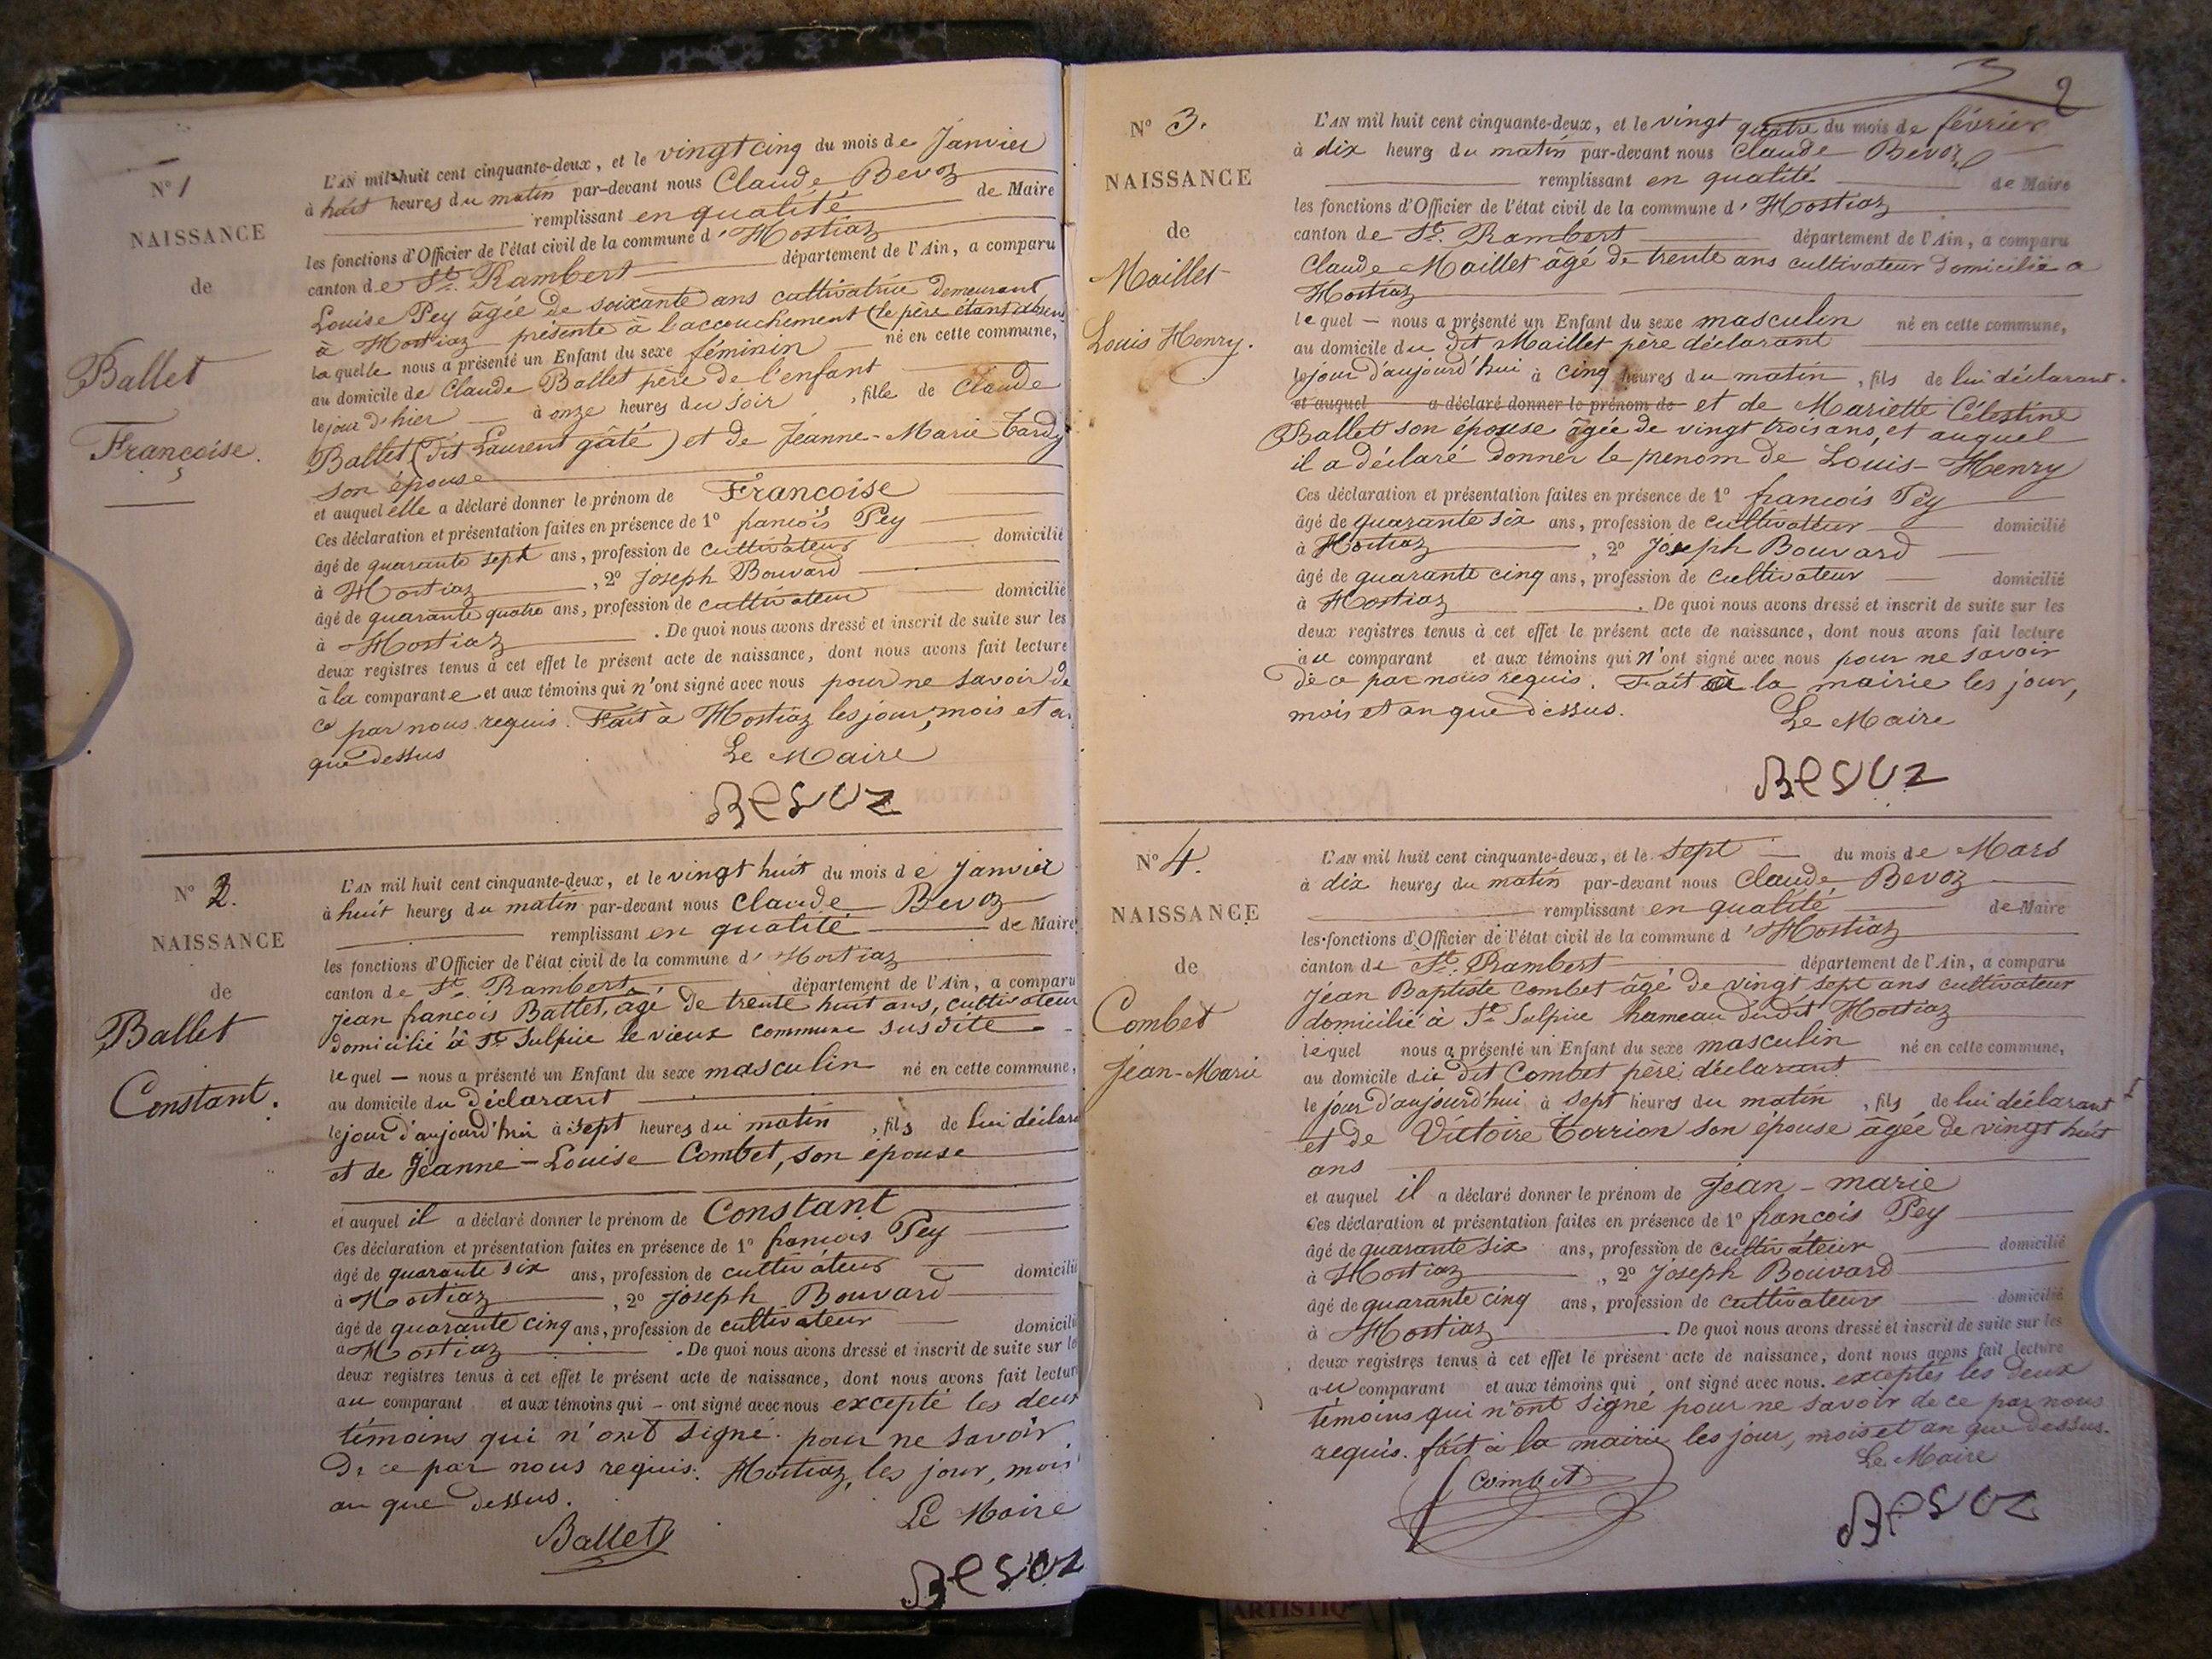 N° 1
NAISSANCE
de
Ballet
Françoise.
L'AN mil huit cent cinquante-deux, et le vingt cinq du mois de Janvier
à huit heures du matin par-devant nous Claude Bevoz
remplissant en qualité de Maire
les fonctions d'Officier de l'état civil de la commune d'Hostiaz
canton de St. Rambert département de l'Ain, a comparu
Louise Pey âgée de soixante ans cultivatrice demeurant
à Hostiaz présente à l'accouchement (le père étant absent
laquelle nous a présenté un Enfant du sexe féminin né en cette commune,
au domicile de Claude Ballet père de l'enfant
le jour d'hier à onze heures du soir, fille de Claude
Ballet (dit Laurent gâté) et de Jeanne-Marie Tardy
son épouse
et auquel elle a déclaré donner le prénom de Françoise
Ces déclaration et présentation faites en présence de 1° françois Pey
âgé de quarante sept ans, profession de cultivateur domicilié
à Hostiaz, 2° Joseph Bouvard
âgé de quarante quatre ans, profession de cultivateur domicilié
à Hostiaz. De quoi nous avons dressé et inscrit de suite sur les
deux registres tenus à cet effet le présent acte de naissance, dont nous avons fait lecture
à la comparante et aux témoins qui n'ont signé avec nous pour ne savoir de
ce par nous requis. Fait à Hostiaz les jour, mois et an
que dessus
Le Maire
Besuz
N° 2.
NAISSANCE
de
Ballet
Constant.
L'AN mil huit cent cinquante-deux, et le vingt huit du mois de Janvier
à huit heures du matin par-devant nous Claude Bevoz
remplissant en qualité de Maire
les fonctions d'Officier de l'état civil de la commune d'Hostiaz
canton de St. Rambert département de l'Ain, a comparu
Jean françois Ballet, âgé de trente huit ans, cultivateur
domicilié à St Sulpice le vieux commune susdite
lequel nous a présenté un Enfant du sexe masculin né en cette commune,
au domicile du Déclarant
le jour d'aujourd'hui à sept heures du matin, fils de lui déclara
et de Jeanne-Louise Combet, son épouse
et auquel il a déclaré donner le prénom de Constant
Ces déclaration et présentation faites en présence de 1° françois Pey
âgé de quarante six ans, profession de cultivateur domicilié
à Hostiaz, 2° Joseph Bouvard
âgé de quarante cinq ans, profession de cultivateur domicilié
à Hostiaz. De quoi nous avons dressé et inscrit de suite sur les
deux registres tenus à cet effet le présent acte de naissance, dont nous avons fait lecture
au comparant et aux témoins qui - ont signé avec nous excepté les deux
témoins qui n'ont signé pour ne savoir
De ce par nous requis. Hostiaz, les jour, mois
an que dessus.
Le Maire
Ballet
Besuz
2
N° 3.
NAISSANCE
de
Maillet
Louis Henry.
L'AN mil huit cent cinquante-deux, et le vingt quatre du mois de février
à dix heures du matin par-devant nous Claude Bevoz
remplissant en qualité de Maire
les fonctions d'Officier de l'état civil de la commune d'Hostiaz
canton de St. Rambert département de l'Ain, a comparu
Claude Maillet âgé de trente ans cultivateur domicilié à
Hostiaz
lequel nous a présenté un Enfant du sexe masculin né en cette commune,
au domicile du dit Maillet père déclarant
le jour d'aujourd'hui à cinq heures du matin, fils de lui déclarant.
et auquel a déclaré donner le prénom de et de Mariette Célestine
Ballet son épouse âgée de vingt trois ans, et auquel
il a déclaré donner le prenom de Louis-Henry
Ces déclaration et présentation faites en présence de 1° françois Pey
âgé de quarante six ans, profession de cultivateur domicilié
à Hostiaz, 2° Joseph Bouvard
âgé de quarante cinq ans, profession de cultivateur domicilié
à Hostiaz. De quoi nous avons dressé et inscrit de suite sur les
deux registres tenus à cet effet le présent acte de naissance, dont nous avons fait lecture
au comparant et aux témoins qui n'ont signé avec nous pour ne savoir
de ce par nous requis. Fait à la mairie les jour,
mois et an que dessus.
Le Maire
Besuz
N° 4.
NAISSANCE
de
Combet
Jean-Marie
L'AN mil huit cent cinquante-deux, et le sept du mois de Mars
à dix heures du matin par-devant nous Claude Bevoz
remplissant en qualité de Maire
les fonctions d'Officier de l'état civil de la commune d'Hostiaz
canton de St. Rambert département de l'Ain, a comparu
Jean Baptiste Combet âgé de vingt sept ans cultivateur
domicilié à St Sulpice hameau dudit Hostiaz
lequel nous a présenté un Enfant du sexe masculin né en cette commune,
au domicile du dit Combet père déclarant
le jour d'aujourd'hui à sept heures du matin, fils de lui déclarant
et de Victoire Torrion son épouse âgée de vingt huit
ans
et auquel il a déclaré donner le prénom de Jean-marie
Ces déclaration et présentation faites en présence de 1° françois Pey
âgé de quarante six ans, profession de cultivateur domicilié
à Hostiaz, 2° Joseph Bouvard
âgé de quarante cinq ans, profession de cultivateur domicilié
à Hostiaz. De quoi nous avons dressé et inscrit de suite sur les
deux registres tenus à cet effet le présent acte de naissance, dont nous avons fait lecture
au comparant et aux témoins qui ont signé avec nous. exceptés les deux
témoins qui n'ont signé pour ne savoir de ce par nous
requis. fait à la mairie les jour, mois et an que dessus.
Le Maire
Combet
Besuz
ARTISTIQ